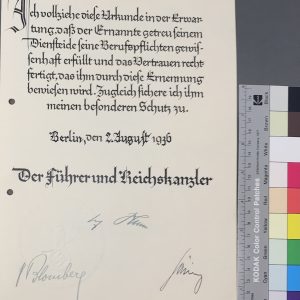 Ich vollziehe diese Urkunde in der Erwar-
tung, daß der Ernannte getreu seinem
Diensteide seine Berufspflichten gewis-
senhaft erfüllt und das Vertrauen recht-
fertigt, das ihm durch diese Ernennung
bewiesen wird. Zugleich sichere ich ihm
meinen besonderen Schutz zu.
Berlin, den 2. August 1936
Der Führer und Reichskanzler
v Blomberg
Göring
KODAK Color Control Patches